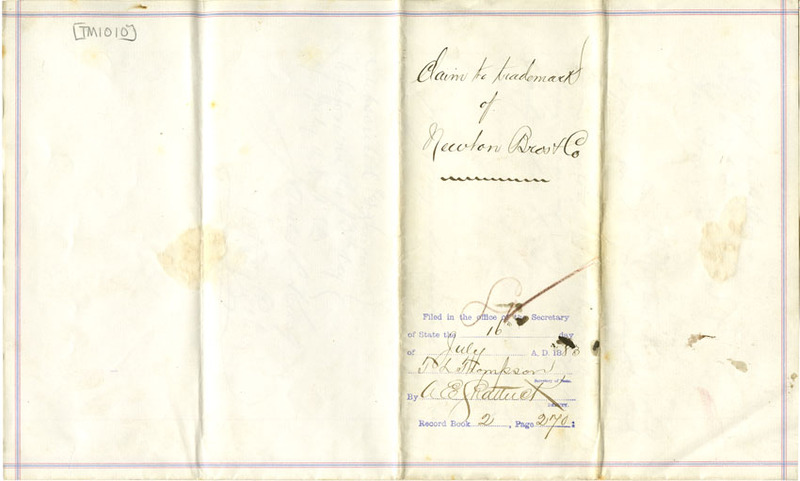 [TM1010]
Claim to trademark
of
Newton Bros & Co
Filed in the office of the Secretary
of State the 16 day
of July A. D. 188
T L Thompson
Secretary of State.
By A E Shattuck
DEPUTY.
Record Book 2, Page 270